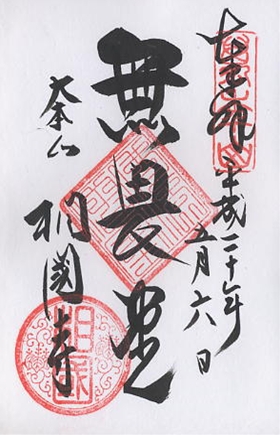 奉拝
平成二十年
五月六日
無畏堂
大本山
相國寺